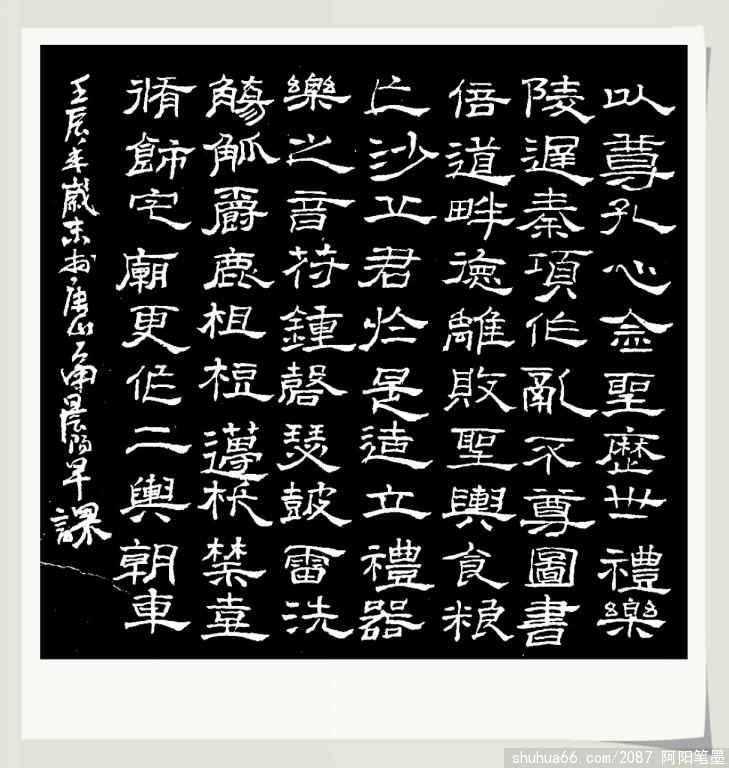 以尊孔心念聖歷世禮樂
陵遲秦項作亂不尊圖書
倍道畔德離敗聖輿食粮
亡沙丘君於是造立禮器
樂之音苻鍾磬瑟鼓雷洗
觴觚爵鹿柤梪籩柉禁壺
脩飾宅廟更作二輿朝車
壬辰年歲末於唐山晨陽早課
shuhua66.com/2087 阿阳笔墨